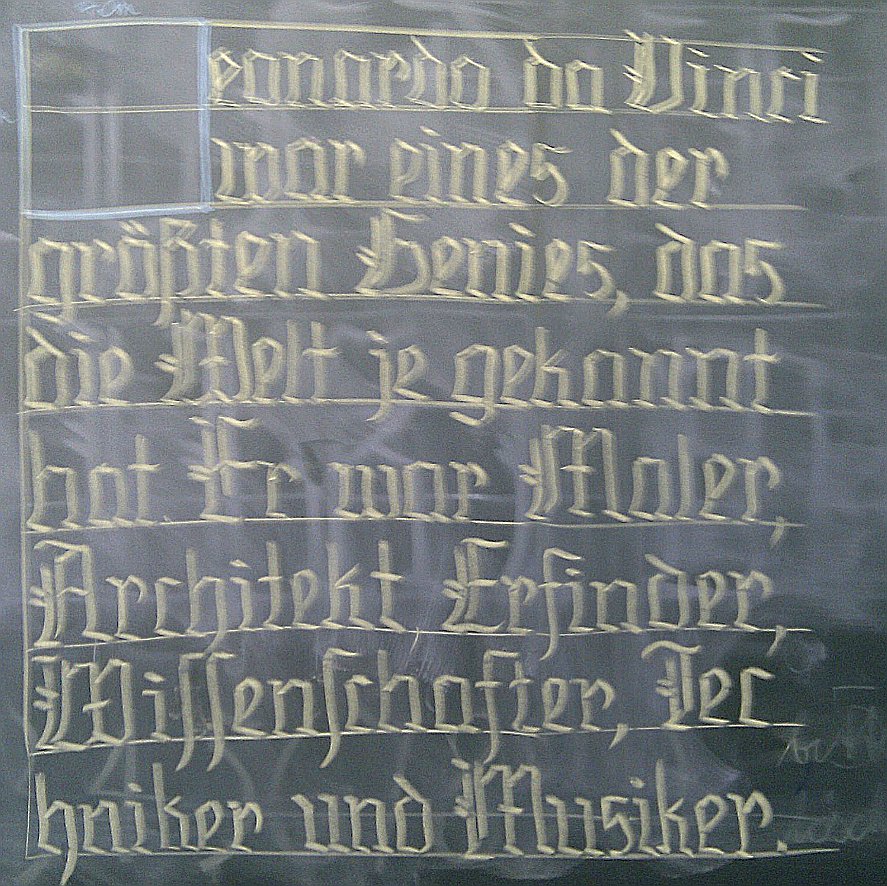 eonardo da Vinci
war eines der
größten Genies, das
die Welt je gekannt
hat. Er war Maler,
Architekt, Erfinder,
Wiſſenſchafter, Tec
hniker und Musiker.